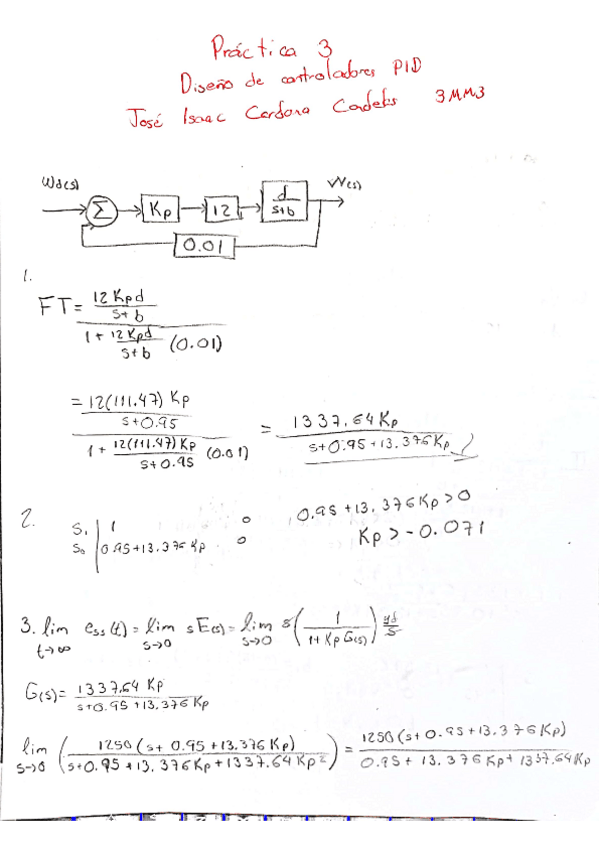 Práctica 3
Diseño de controladores PID
José Isaac Cardona 3MM3
Wd(s) Σ Kp 12 d/(s+b) W(s)
0.01
1.
FT = (12Kpd/(s+b)) / (1 + 12Kpd/(s+b) (0.01))
= (12(111.47)Kp/(s+0.95)) / (1 + 12(111.47)Kp/(s+0.95) (0.01)) = 1337.64Kp/(s+0.95+13.376Kp)
2. S₁ | 1 0 0.95+13.376Kp>0
S₀ | 0.95+13.376Kp 0 Kp>-0.071
3. lim t→∞ ess(t) = lim s→0 sE(s) = lim s→0 s(1/(1+KpG(s))) yd/s
G(s) = 1337.64 Kp/(s+0.95+13.376Kp)
lim s→0 (1250(s+0.95+13.376Kp)/(s+0.95+13.376Kp+1337.64Kp²)) = 1250(s+0.95+13.376Kp)/(0.95+13.376Kp+1337.64Kp)